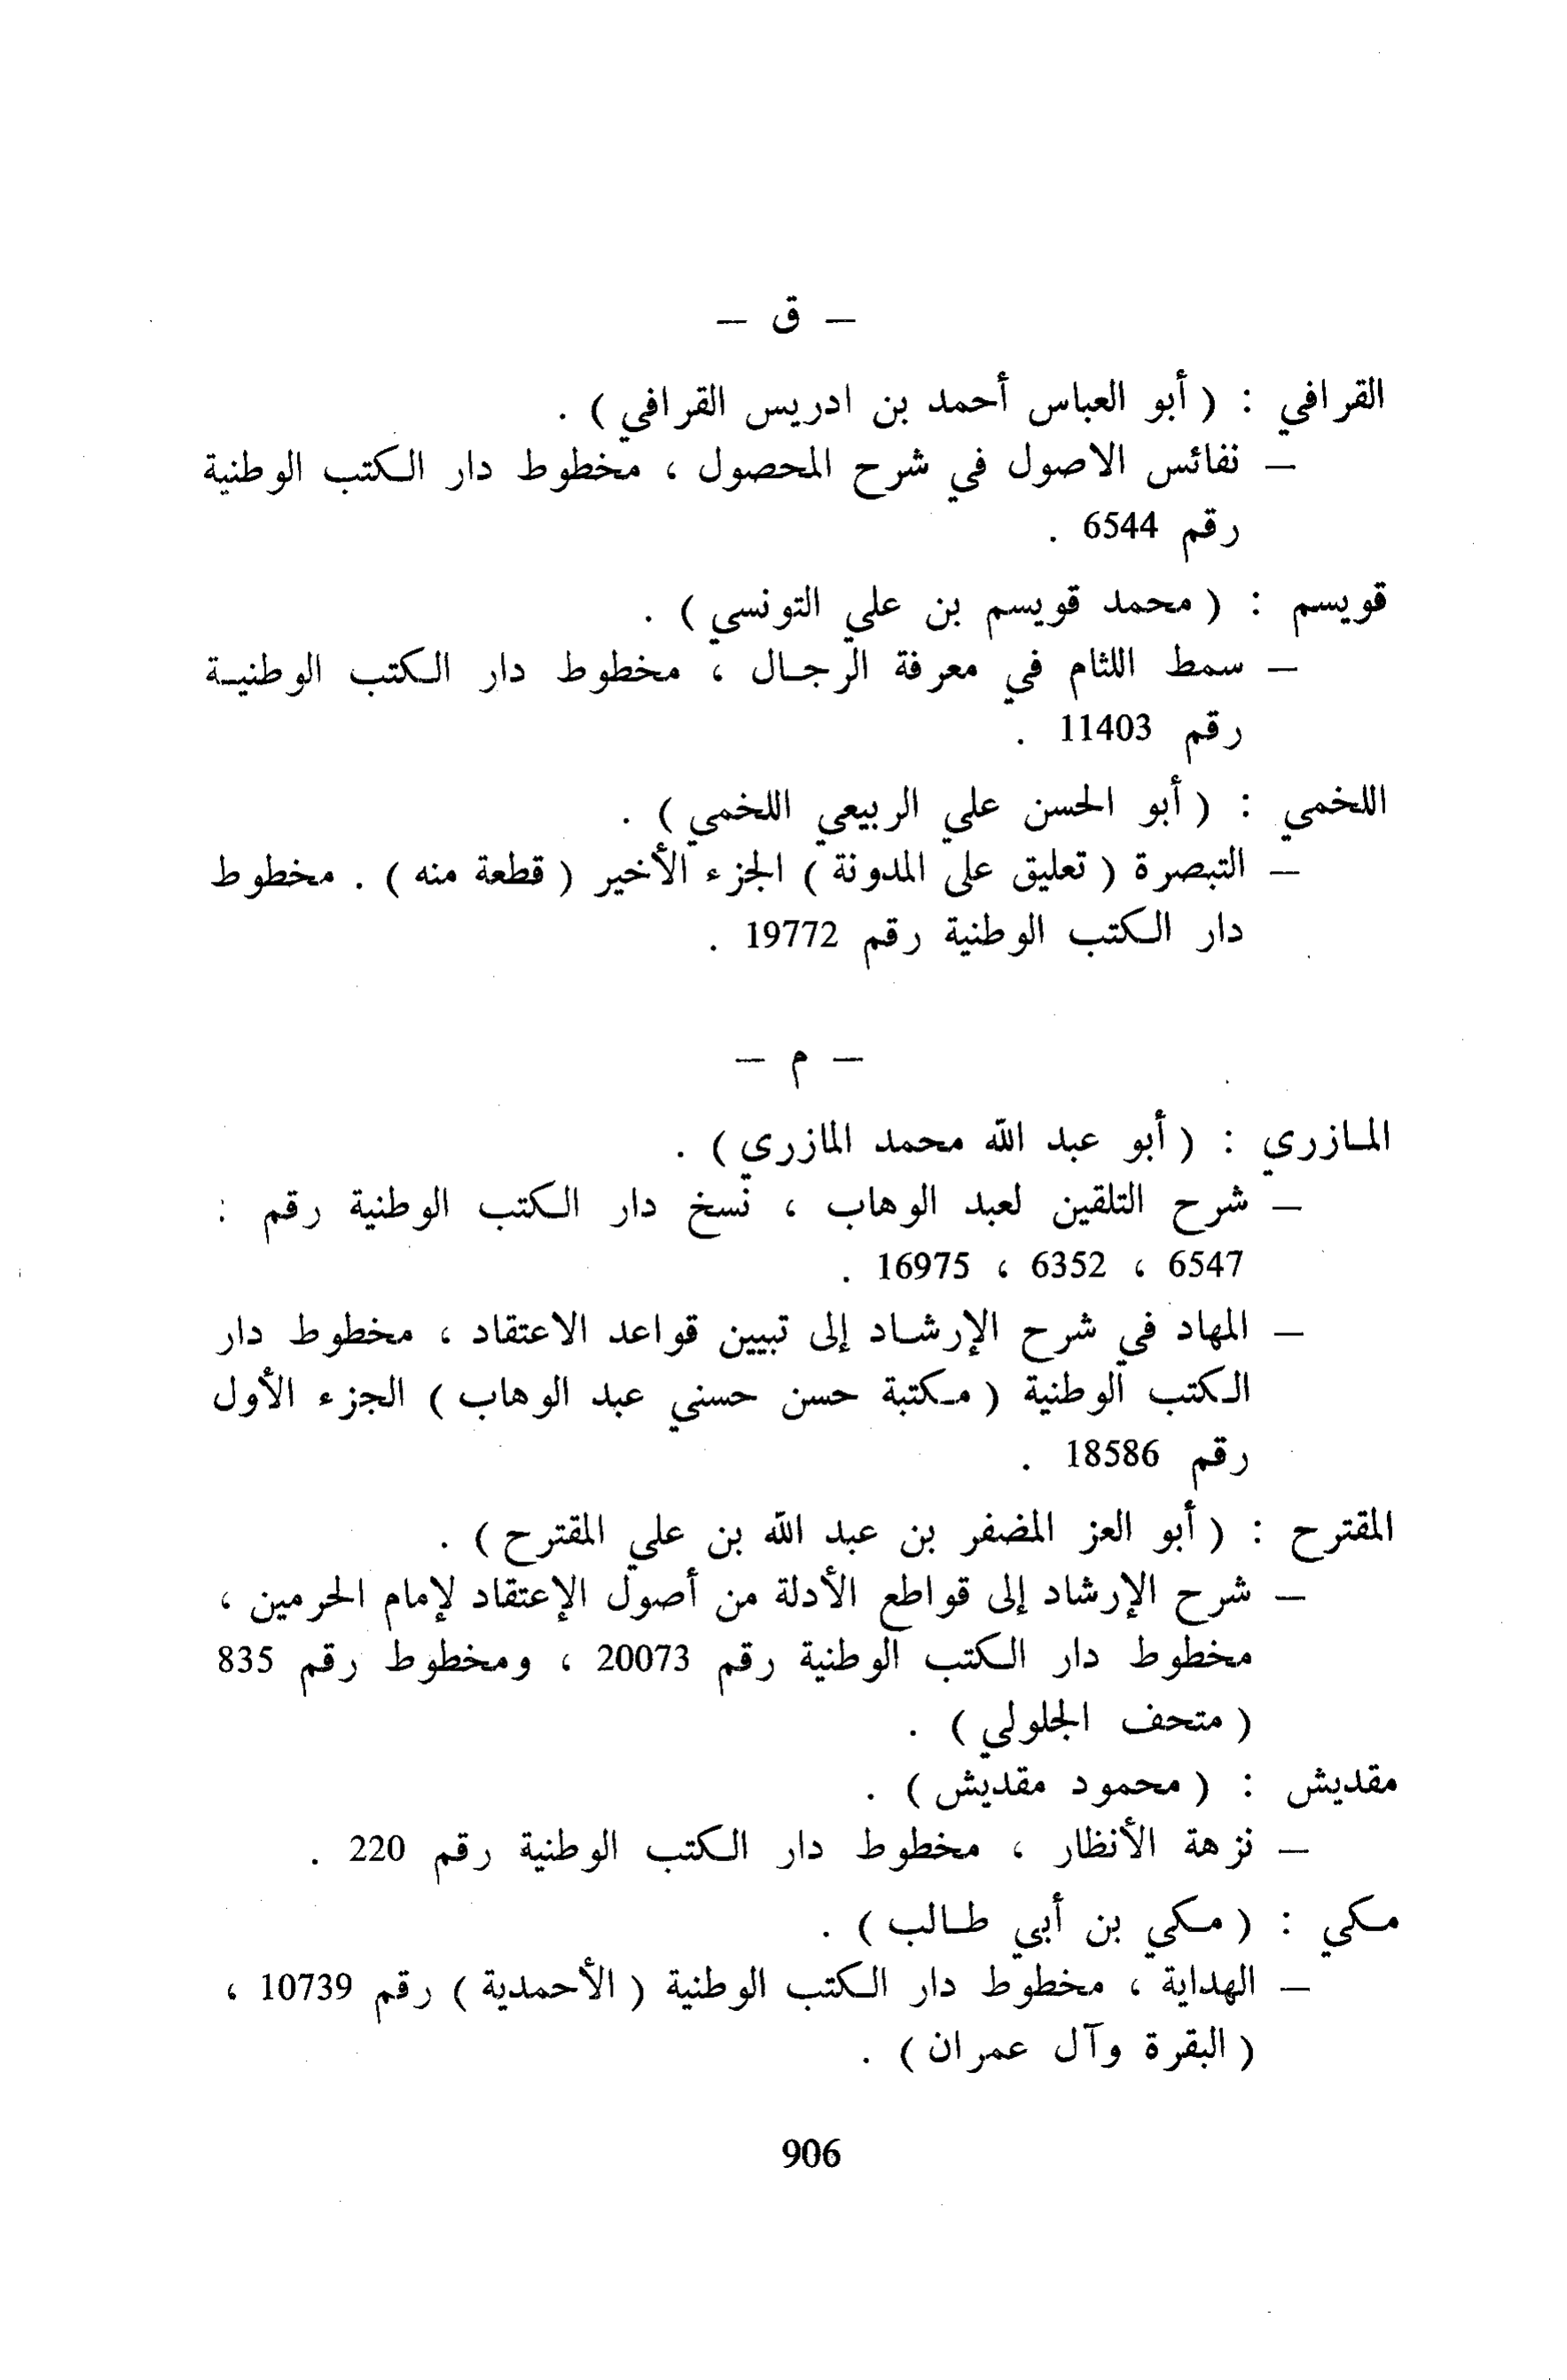 – ق –
القرافي : ( أبو العباس أحمد بن ادريس القرافي ) .
– نفائس الاصول في شرح المحصول ، مخطوط دار الكتب الوطنية
رقم 6544 .
قويسم : ( محمد قويسم بن علي التونسي ) .
– سمط اللثام في معرفة الرجال ، مخطوط دار الكتب الوطنية
رقم 11403 .
اللخمي : ( أبو الحسن علي الربيعي اللخمي ) .
– التبصرة ( تعليق على المدونة ) الجزء الأخير ( قطعة منه ) . مخطوط
دار الكتب الوطنية رقم 19772 .
– م –
المازري : ( أبو عبد الله محمد المازري ) .
– شرح التلقين لعبد الوهاب ، نسخ دار الكتب الوطنية رقم :
6547 ، 6352 ، 16975 .
– المهاد في شرح الإرشاد إلى تبيين قواعد الاعتقاد ، مخطوط دار
الكتب الوطنية ( مكتبة حسن حسني عبد الوهاب ) الجزء الأول
رقم 18586 .
المقترح : ( أبو العز المضفر بن عبد الله بن علي المقترح ) .
– شرح الإرشاد إلى قواطع الأدلة من أصول الإعتقاد لإمام الحرمين ،
مخطوط دار الكتب الوطنية رقم 20073 ، ومخطوط رقم 835
( متحف الجلولي ) .
مقديش : ( محمود مقديش ) .
– نزهة الأنظار ، مخطوط دار الكتب الوطنية رقم 220 .
مكي : ( مكي بن أبي طالب ) .
– الهداية ، مخطوط دار الكتب الوطنية ( الأحمدية ) رقم 10739 ،
( البقرة وآل عمران ) .
906